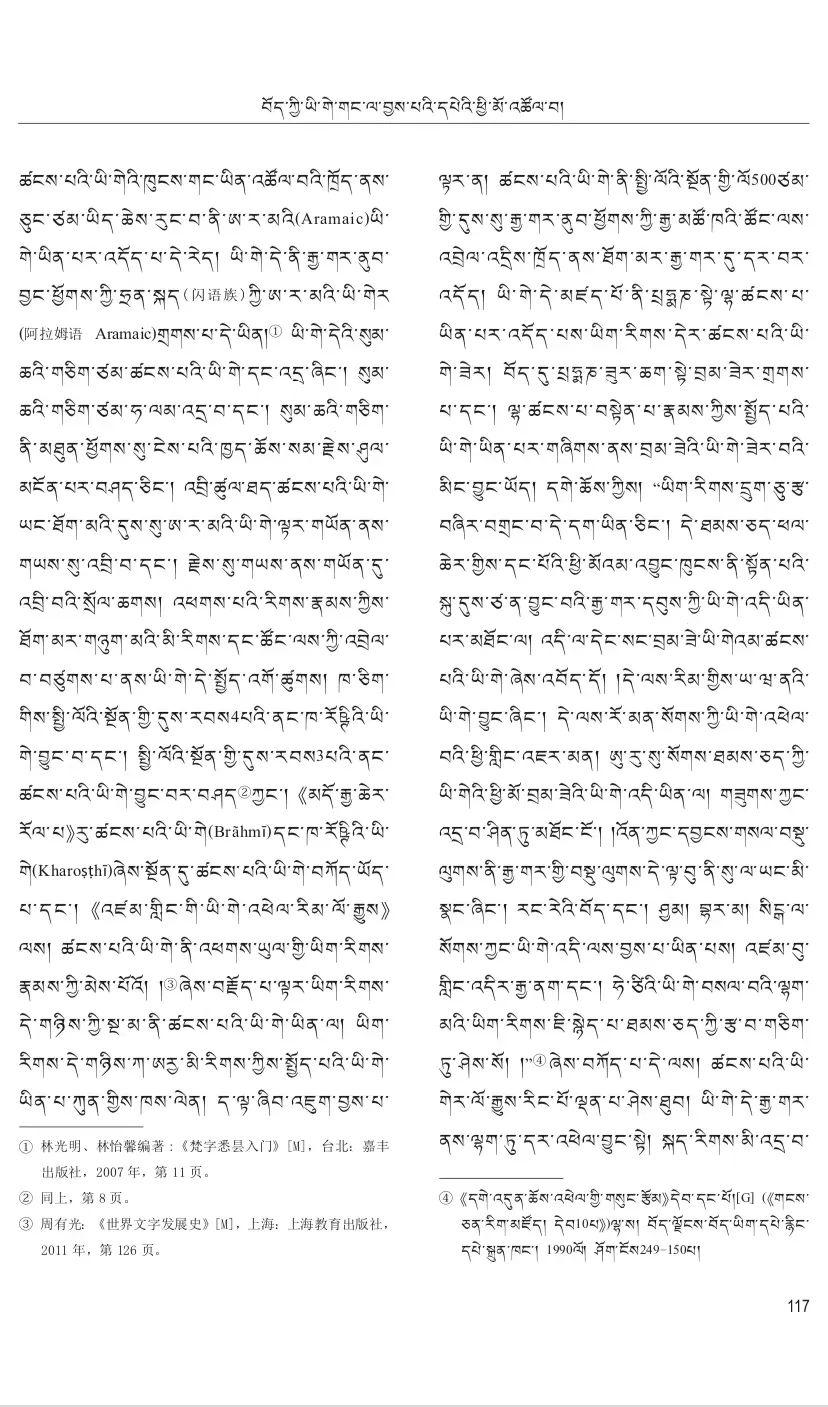 བོད་ཀྱི་ཡི་གེ་གང་ལ་བྱས་པའི་དཔེའི་ཕྱི་མོ་འཚོལ་བ།
ཚངས་པའི་ཡི་གེའི་ཁུངས་གང་ཡིན་འཚོལ་བའི་ཁྲོད་ནས་
ཅུང་ཙམ་ཡིད་ཆེས་རུང་བ་ནི་ཨ་ར་མའི(Aramaic)ཡི་
གེ་ཡིན་པར་འདོད་པ་དེ་རེད། ཡི་གེ་དེ་ནི་རྒྱ་གར་ནུབ་
བྱང་ཕྱོགས་ཀྱི་ཧྲན་སྐད(闪语族)ཀྱི་ཨ་ར་མའི་ཡི་གེར
(阿拉姆语 Aramaic)གྲགས་པ་དེ་ཡིན།① ཡི་གེ་དེའི་སུམ་
ཆའི་གཅིག་ཙམ་ཚངས་པའི་ཡི་གེ་དང་འདྲ་ཞིང་། སུམ་
ཆའི་གཅིག་ཙམ་ཧ་ལམ་འདྲ་བ་དང་། སུམ་ཆའི་གཅིག་
ནི་མཐུན་ཕྱོགས་སུ་ངེས་པའི་ཁྱད་ཆོས་སམ་རྗེས་ཤུལ་
མངོན་པར་བཤད་ཅིང་། འབྲི་ཚུལ་ཐད་ཚངས་པའི་ཡི་གེ་
ཡང་ཐོག་མའི་དུས་སུ་ཨ་ར་མའི་ཡི་གེ་ལྟར་གཡོན་ནས་
གཡས་སུ་འབྲི་བ་དང་། རྗེས་སུ་གཡས་ནས་གཡོན་དུ་
འབྲི་བའི་སྲོལ་ཆགས། འཕགས་པའི་རིགས་རྣམས་ཀྱིས་
ཐོག་མར་གཉུག་མའི་མི་རིགས་དང་ཚོང་ལས་ཀྱི་འབྲེལ་
བ་བཙུགས་པ་ནས་ཡི་གེ་དེ་སྤྱོད་འགོ་ཚུགས། ཁ་ཅིག་
གིས་སྤྱི་ལོའི་སྔོན་གྱི་དུས་རབས4པའི་ནང་ཁ་རོཥྛིའི་ཡི་
གེ་བྱུང་བ་དང་། སྤྱི་ལོའི་སྔོན་གྱི་དུས་རབས3པའི་ནང་
ཚངས་པའི་ཡི་གེ་བྱུང་བར་བཤད②ཀྱང་། 《མདོ་རྒྱ་ཆེར་
རོལ་པ》རུ་ཚངས་པའི་ཡི་གེ(Brāhmī)དང་ཁ་རོཥྛིའི་ཡི་
གེ(Kharoṣṭhī)ཞེས་སྔོན་དུ་ཚངས་པའི་ཡི་གེ་བཀོད་ཡོད་
པ་དང་། 《འཛམ་གླིང་གི་ཡི་གེ་འཕེལ་རིམ་ལོ་རྒྱུས》
ལས། ཚངས་པའི་ཡི་གེ་ནི་འཕགས་ཡུལ་གྱི་ཡིག་རིགས་
རྣམས་ཀྱི་མེས་པོའོ། །③ཞེས་བརྗོད་པ་ལྟར་ཡིག་རིགས་
དེ་གཉིས་ཀྱི་སྔ་མ་ནི་ཚངས་པའི་ཡི་གེ་ཡིན་ལ། ཡིག་
རིགས་དེ་གཉིས་ཀ་ཨརྱ་མི་རིགས་ཀྱིས་སྤྱོད་པའི་ཡི་གེ་
ཡིན་པ་ཀུན་གྱིས་ཁས་ལེན། ད་ལྟ་ཞིབ་འཇུག་བྱས་པ་
① 林光明、林怡馨编著:《梵字悉昙入门》[M],台北:嘉丰
出版社,2007 年,第 11 页。
② 同上,第 8 页。
③ 周有光:《世界文字发展史》[M],上海:上海教育出版社,
2011 年,第 126 页。
ལྟར་ན། ཚངས་པའི་ཡི་གེ་ནི་སྤྱི་ལོའི་སྔོན་གྱི་ལོ500ཙམ་
གྱི་དུས་སུ་རྒྱ་གར་ནུབ་ཕྱོགས་ཀྱི་རྒྱ་མཚོ་ཁའི་ཚོང་ལས་
འབྲེལ་འདྲིས་ཁྲོད་ནས་ཐོག་མར་རྒྱ་གར་དུ་དར་བར་
འདོད། ཡི་གེ་དེ་མཛད་པོ་ནི་པྲཧྨཎ་སྟེ་ལྷ་ཚངས་པ་
ཡིན་པར་འདོད་པས་ཡིག་རིགས་དེར་ཚངས་པའི་ཡི་
གེ་ཟེར། བོད་དུ་པྲཧྨཎ་ཟུར་ཆག་སྟེ་བྲམ་ཟེར་གྲགས་
པ་དང་། ལྷ་ཚངས་པ་བསྟེན་པ་རྣམས་ཀྱིས་སྤྱོད་པའི་
ཡི་གེ་ཡིན་པར་གཞིགས་ནས་བྲམ་ཟེའི་ཡི་གེ་ཟེར་བའི་
མིང་བྱུང་ཡོད། དགེ་ཆོས་ཀྱིས། “ཡིག་རིགས་དྲུག་ཅུ་རྩ་
བཞིར་བགྲང་བ་དེ་དག་ཡིན་ཅིང་། དེ་ཐམས་ཅད་ཕལ་
ཆེར་གྱིས་དང་པོའི་ཕྱི་མོའམ་འབྱུང་ཁུངས་ནི་སྟོན་པའི་
སྐུ་དུས་ཙ་ན་བྱུང་བའི་རྒྱ་གར་དབུས་ཀྱི་ཡི་གེ་འདི་ཡིན་
པར་མཐོང་ལ། འདི་ལ་དེང་སང་བྲམ་ཟེ་ཡི་གེའམ་ཚངས་
པའི་ཡི་གེ་ཞེས་འབོད་དོ། །དེ་ལས་རིམ་གྱིས་ཡ་ཝ་ནའི་
ཡི་གེ་བྱུང་ཞིང་། དེ་ལས་རོ་མན་སོགས་ཀྱི་ཡི་གེ་འཕེལ་
བའི་ཕྱི་གླིང་འཇར་མན། ཨུ་རུ་སུ་སོགས་ཐམས་ཅད་ཀྱི་
ཡི་གེའི་ཕྱི་མོ་བྲམ་ཟེའི་ཡི་གེ་འདི་ཡིན་ལ། གཟུགས་ཀྱང་
འདྲ་བ་ཤིན་ཏུ་མཐོང་ངོ་། །འོན་ཀྱང་དབྱངས་གསལ་བསྡུ་
ལུགས་ནི་རྒྱ་གར་གྱི་བསྡུ་ལུགས་དེ་ལྟ་བུ་ནི་སུ་ལ་ཡང་མི་
སྣང་ཞིང་། རང་རེའི་བོད་དང་། ཤྱམ། བྷར་མ། སིངྒ་ལ་
སོགས་ཀྱང་ཡི་གེ་འདི་ལས་བྱས་པ་ཡིན་པས། འཛམ་བུ་
གླིང་འདིར་རྒྱ་ནག་དང་། ཧེ་ཙིའི་ཡི་གེ་བསལ་བའི་ལྷག་
མའི་ཡིག་རིགས་ཇི་སྙེད་པ་ཐམས་ཅད་ཀྱི་རྩ་བ་གཅིག་
ཏུ་ཤེས་སོ། །”④ཞེས་བཀོད་པ་དེ་ལས། ཚངས་པའི་ཡི་
གེར་ལོ་རྒྱུས་རིང་པོ་ལྡན་པ་ཤེས་ཐུབ། ཡི་གེ་དེ་རྒྱ་གར་
ནས་ལྷག་ཏུ་དར་འཕེལ་བྱུང་སྟེ། སྐད་རིགས་མི་འདྲ་བ་
④ 《དགེ་འདུན་ཆོས་འཕེལ་གྱི་གསུང་རྩོམ》དེབ་དང་པོ།[G] (《གངས་
ཅན་རིག་མཛོད། དེབ10པ》)ལྷ་ས། བོད་ལྗོངས་བོད་ཡིག་དཔེ་རྙིང་
དཔེ་སྐྲུན་ཁང་། 1990ལོ། ཤོག་ངོས249-150པ།
117